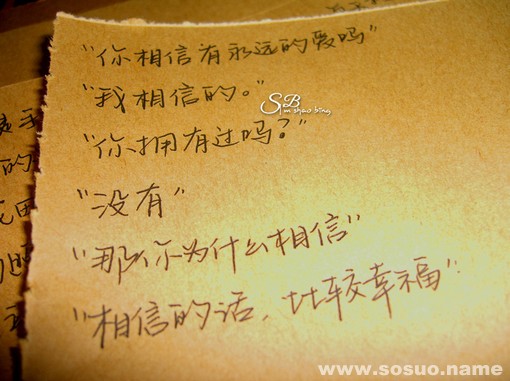 "你相信有永远的爱吗"
"我相信的。"
"你拥有过吗？"
"没有"
"那你为什么相信"
"相信的话，比较幸福"
www.sosuo.name